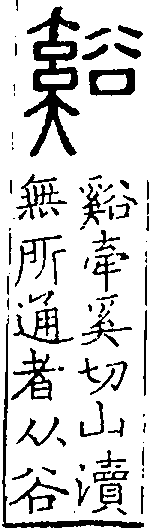 谿
谿牽奚切山瀆
無所通者从谷